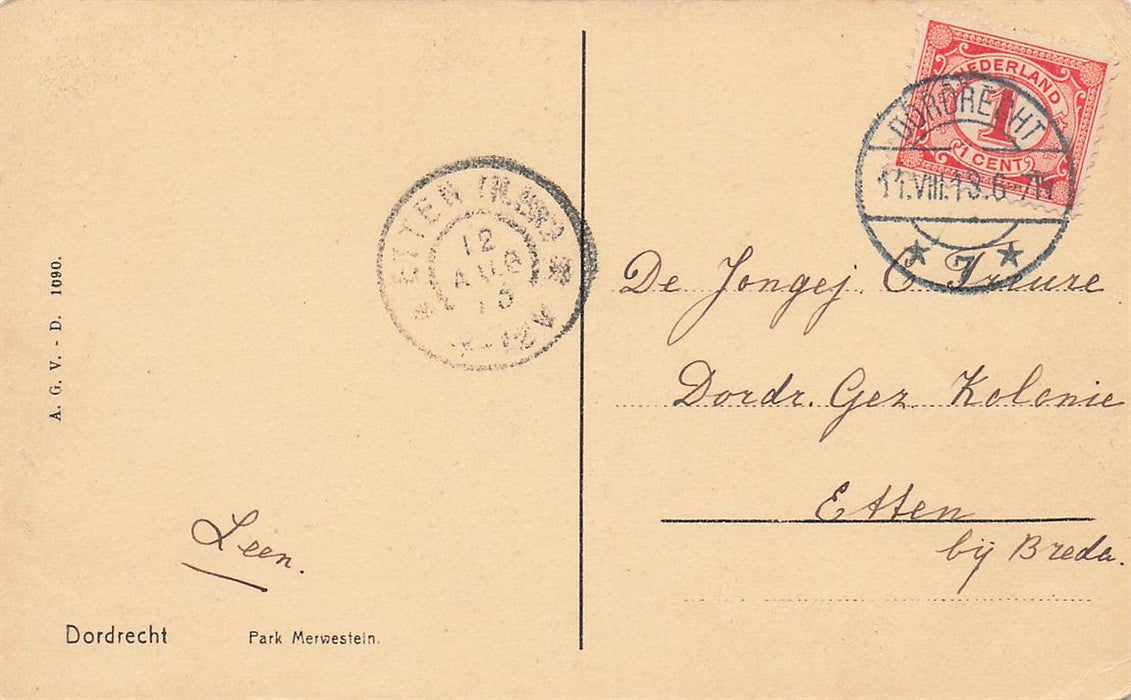 NEDERLAND
1
1 CENT
DORDRECHT
11.VIII.13.6-7N
7
ETTEN
12
AUG
13
De Jongej. C Treure
Dordr. Gez. Kolonie
Etten
bij Breda.
A. G. V. - D. 1090.
Leen.
Dordrecht Park Merwestein.